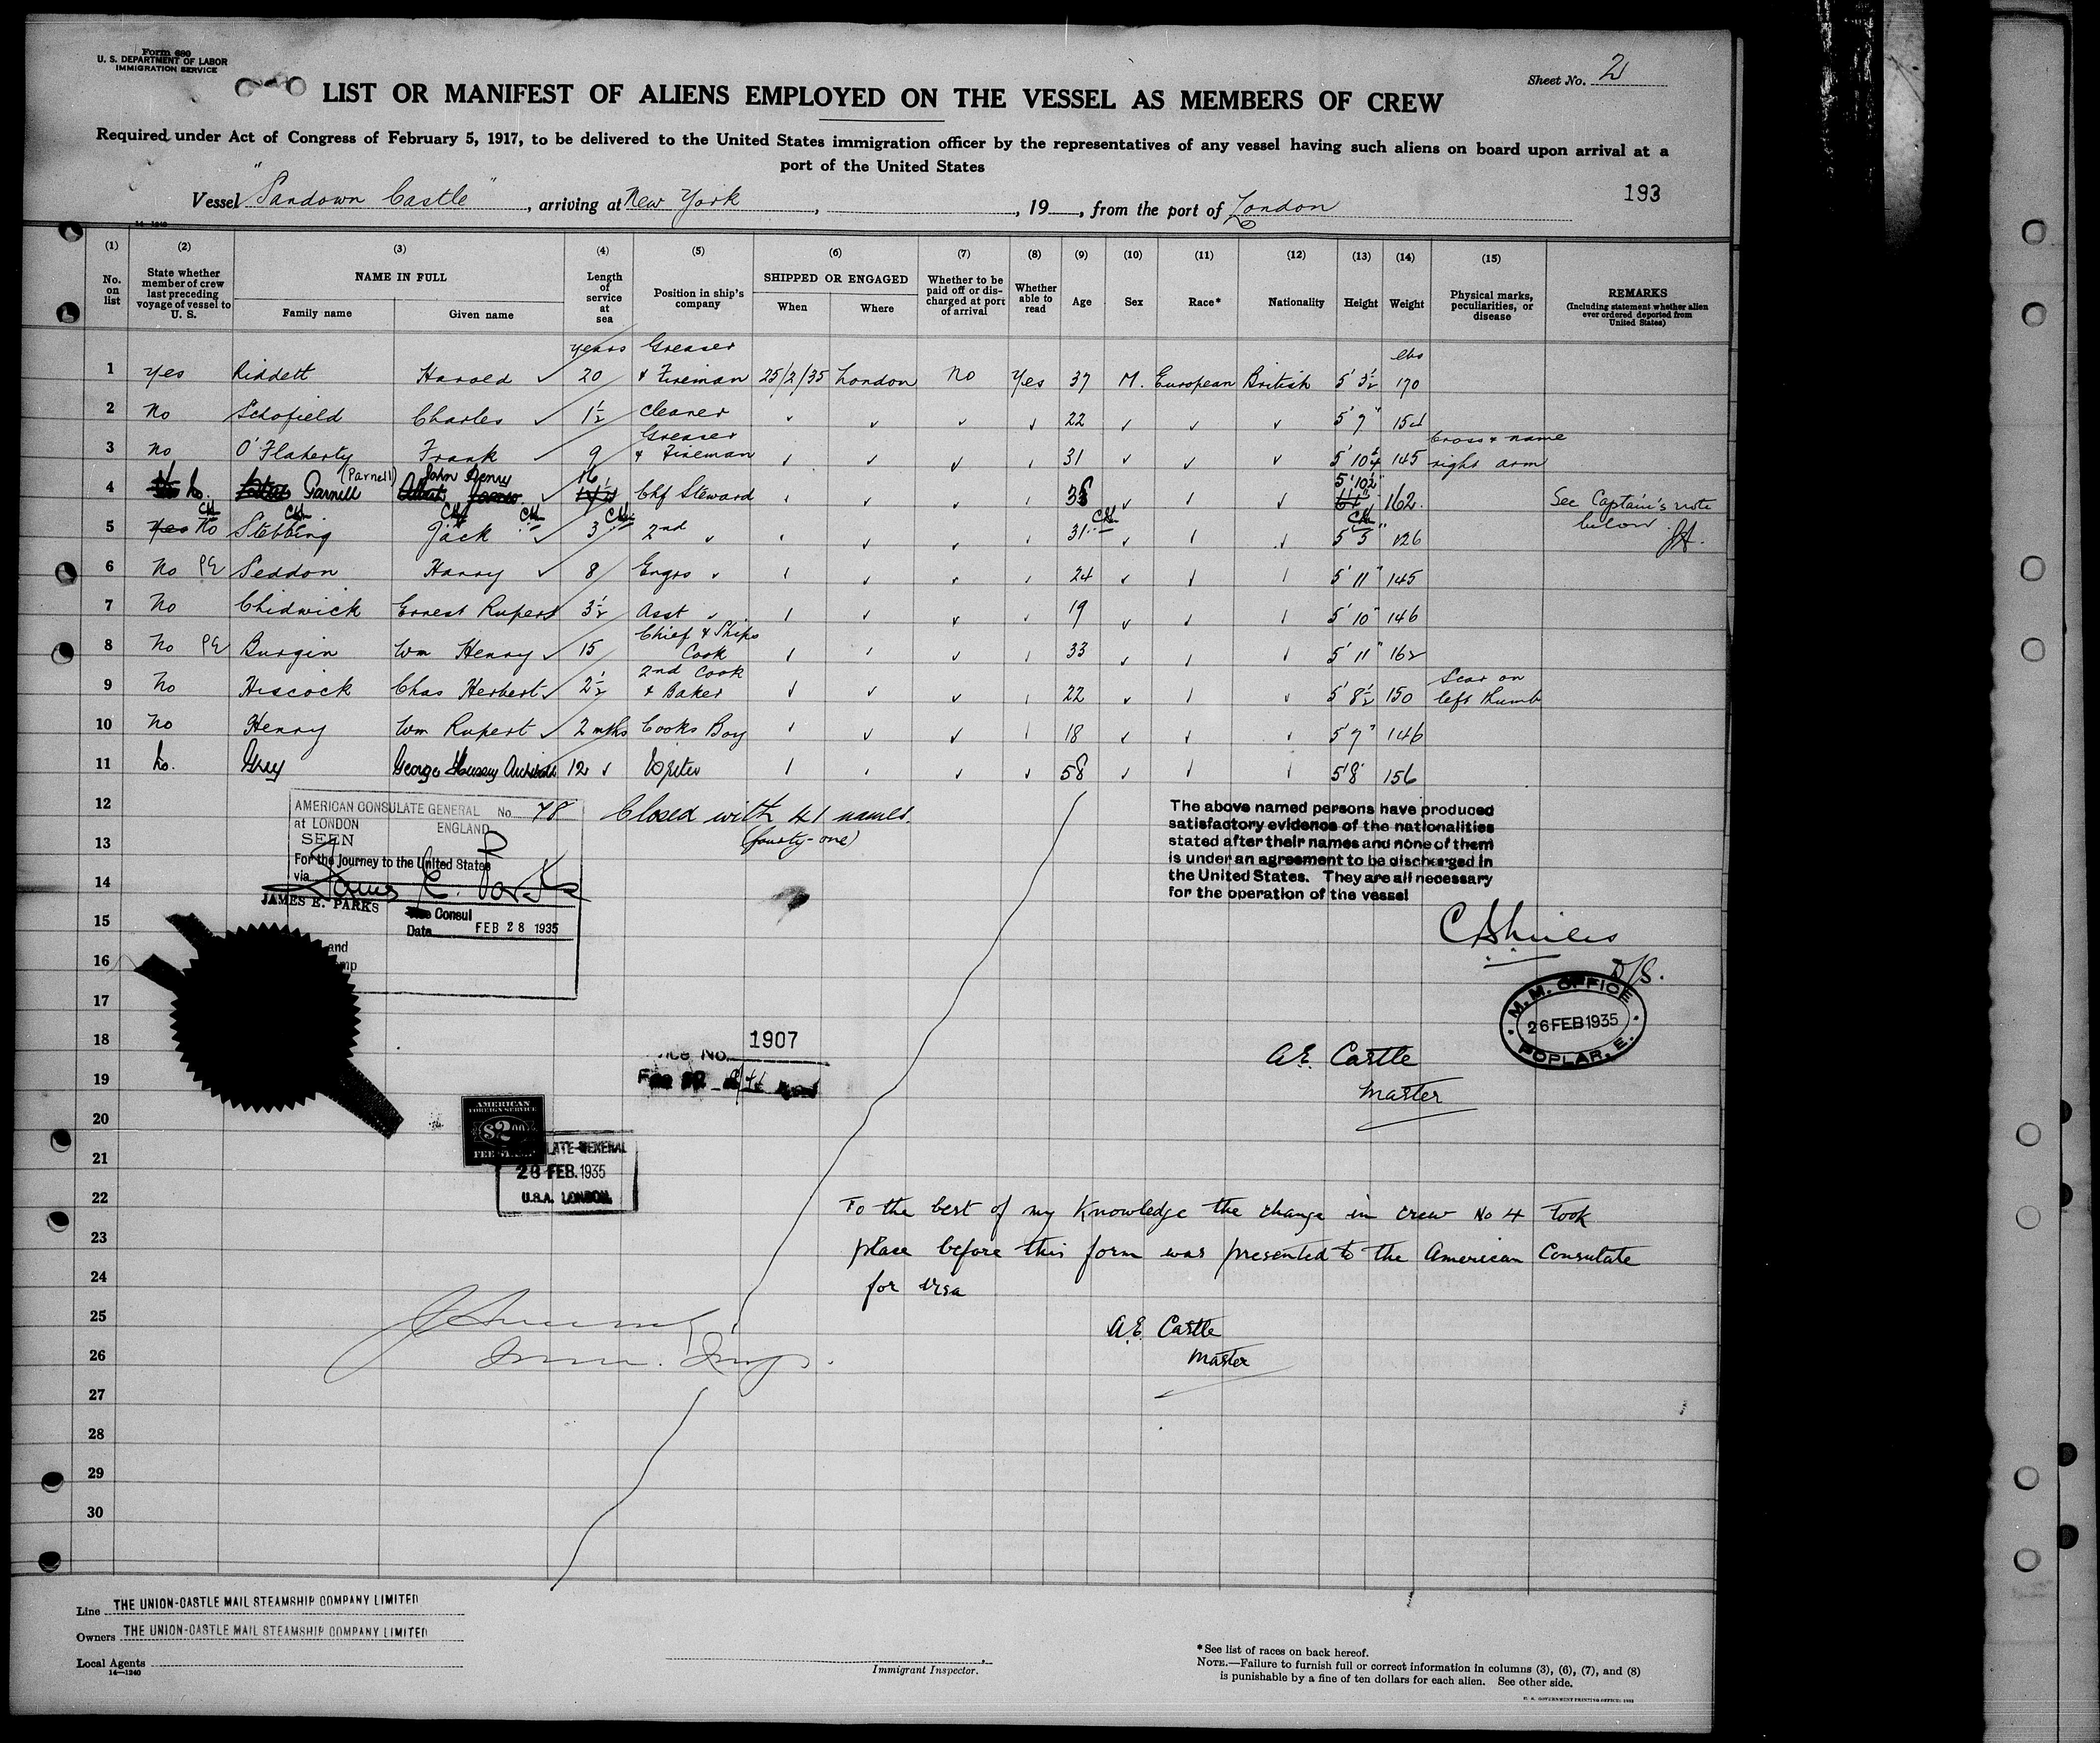 Form 680
U. S. DEPARTMENT OF LABOR
IMMIGRATION SERVICE
Sheet No. 2
LIST OR MANIFEST OF ALIENS EMPLOYED ON THE VESSEL AS MEMBERS OF CREW
Required under Act of Congress of February 5, 1917, to be delivered to the United States immigration officer by the representatives of any vessel having such aliens on board upon arrival at a
port of the United States
193
Vessel "Sandown Castle", arriving at New York, , 19 , from the port of London
(1) (2) (3) (4) (5) (6) (7) (8) (9) (10) (11) (12) (13) (14) (15)
No. on list
State whether member of crew last preceding voyage of vessel to U. S.
NAME IN FULL
Family name Given name
Length of service at sea
Position in ship's company
SHIPPED OR ENGAGED
When Where
Whether to be paid off or discharged at port of arrival
Whether able to read
Age Sex Race* Nationality Height Weight
Physical marks, peculiarities, or disease
REMARKS
(Including statement whether alien ever ordered deported from United States)
years Greaser lbs
1 Yes Riddett Harold ✓ 20 & Fireman 25/2/35 London No Yes 37 M. European British 5' 3½ 170
2 No Schofield Charles ✓ 1½ Cleaner ✓ ✓ ✓ ✓ 22 ✓ ✓ ✓ 5' 7" 154
Greaser Cross & name
3 No O'Flaherty Frank ✓ 9 & Fireman ✓ ✓ ✓ ✓ 31 ✓ ✓ ✓ 5' 10¼ 145 right arm
(Parnell) John Henry 16 5' 10½"
4 No. Parnell ✓ Chf Steward 38 162. See Captain's note
below JH.
5 Yes No Stebbing Jack ✓ 3 2nd ✓ 31 5' 5" 126
6 No PE Seddon Harry ✓ 8 Engrs ✓ 24 5' 11" 145
7 No Chidwick Ernest Rupert 3½ Asst ✓ 19 5' 10" 146
Chief & Ships
8 No PE Burgin Wm Henry ✓ 15 Cook 33 5' 11" 162
2nd Cook Scar on
9 No Hiscock Chas Herbert ✓ 2½ & Baker 22 5' 8½ 150 left thumb
10 No Henry Wm Rupert ✓ 2 mths Cooks Boy 18 5' 7" 146
11 No. Grey George 12 ✓ Writer 58 5' 8" 156
12
13
14
15
16
17
18
19
20
21
22
23
24
25
26
27
28
29
30
AMERICAN CONSULATE GENERAL No. 78
at LONDON ENGLAND
SEEN
For the journey to the United States
via
James E. Parks
JAMES E. PARKS
Vice Consul
Date FEB 28 1935
Closed with 41 names.
(fourty-one)
The above named persons have produced
satisfactory evidence of the nationalities
stated after their names and none of them
is under an agreement to be discharged in
the United States. They are all necessary
for the operation of the vessel
D/S.
M. M. OFFICE
26 FEB 1935
POPLAR, E.
A.E. Castle
Master
No. 1907
AMERICAN
FOREIGN SERVICE
$2.00
FEE STAMP
28 FEB. 1935
U.S.A. LONDON.
To the best of my knowledge the change in crew No 4 took
place before this form was presented to the American Consulate
for visa
A.E. Castle
Master
Imm. Insp.
Line THE UNION-CASTLE MAIL STEAMSHIP COMPANY LIMITED
Owners THE UNION-CASTLE MAIL STEAMSHIP COMPANY LIMITED
Local Agents
14—1240
Immigrant Inspector.
*See list of races on back hereof.
NOTE.—Failure to furnish full or correct information in columns (3), (6), (7), and (8)
is punishable by a fine of ten dollars for each alien. See other side.